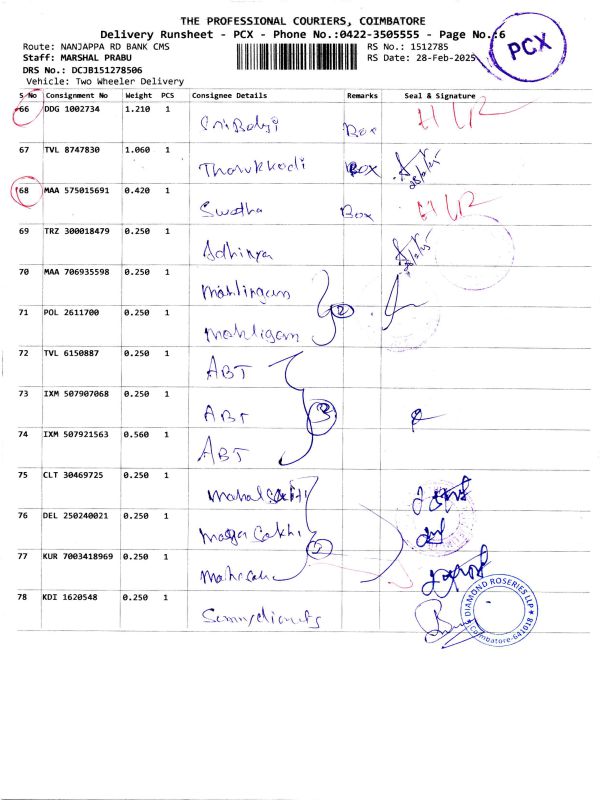 THE PROFESSIONAL COURIERS, COIMBATORE
Delivery Runsheet - PCX - Phone No.:0422-3505555 - Page No.:6
PCX
Route: NANJAPPA RD BANK CMS
RS No.: 1512785
Staff: MARSHAL PRABU
RS Date: 28-Feb-2025
DRS No.: DCJB151278506
Vehicle: Two Wheeler Delivery
S No Consignment No Weight PCS Consignee Details Remarks Seal & Signature
66 DDG 1002734 1.210 1 Sri Balaji Box
67 TVL 8747830 1.060 1 Box
68 MAA 575015691 0.420 1 Swatha Box
69 TRZ 300018479 0.250 1
70 MAA 706935598 0.250 1 Mahlingam
2
71 POL 2611700 0.250 1 Mahligam
72 TVL 6150887 0.250 1 ABT
73 IXM 507907068 0.250 1 ABT 3
74 IXM 507921563 0.560 1 ABT
75 CLT 30469725 0.250 1
76 DEL 250240021 0.250 1
77 KUR 7003418969 0.250 1
78 KDI 1620548 0.250 1
DIAMOND ROSERIES LLP
Coimbatore-641018